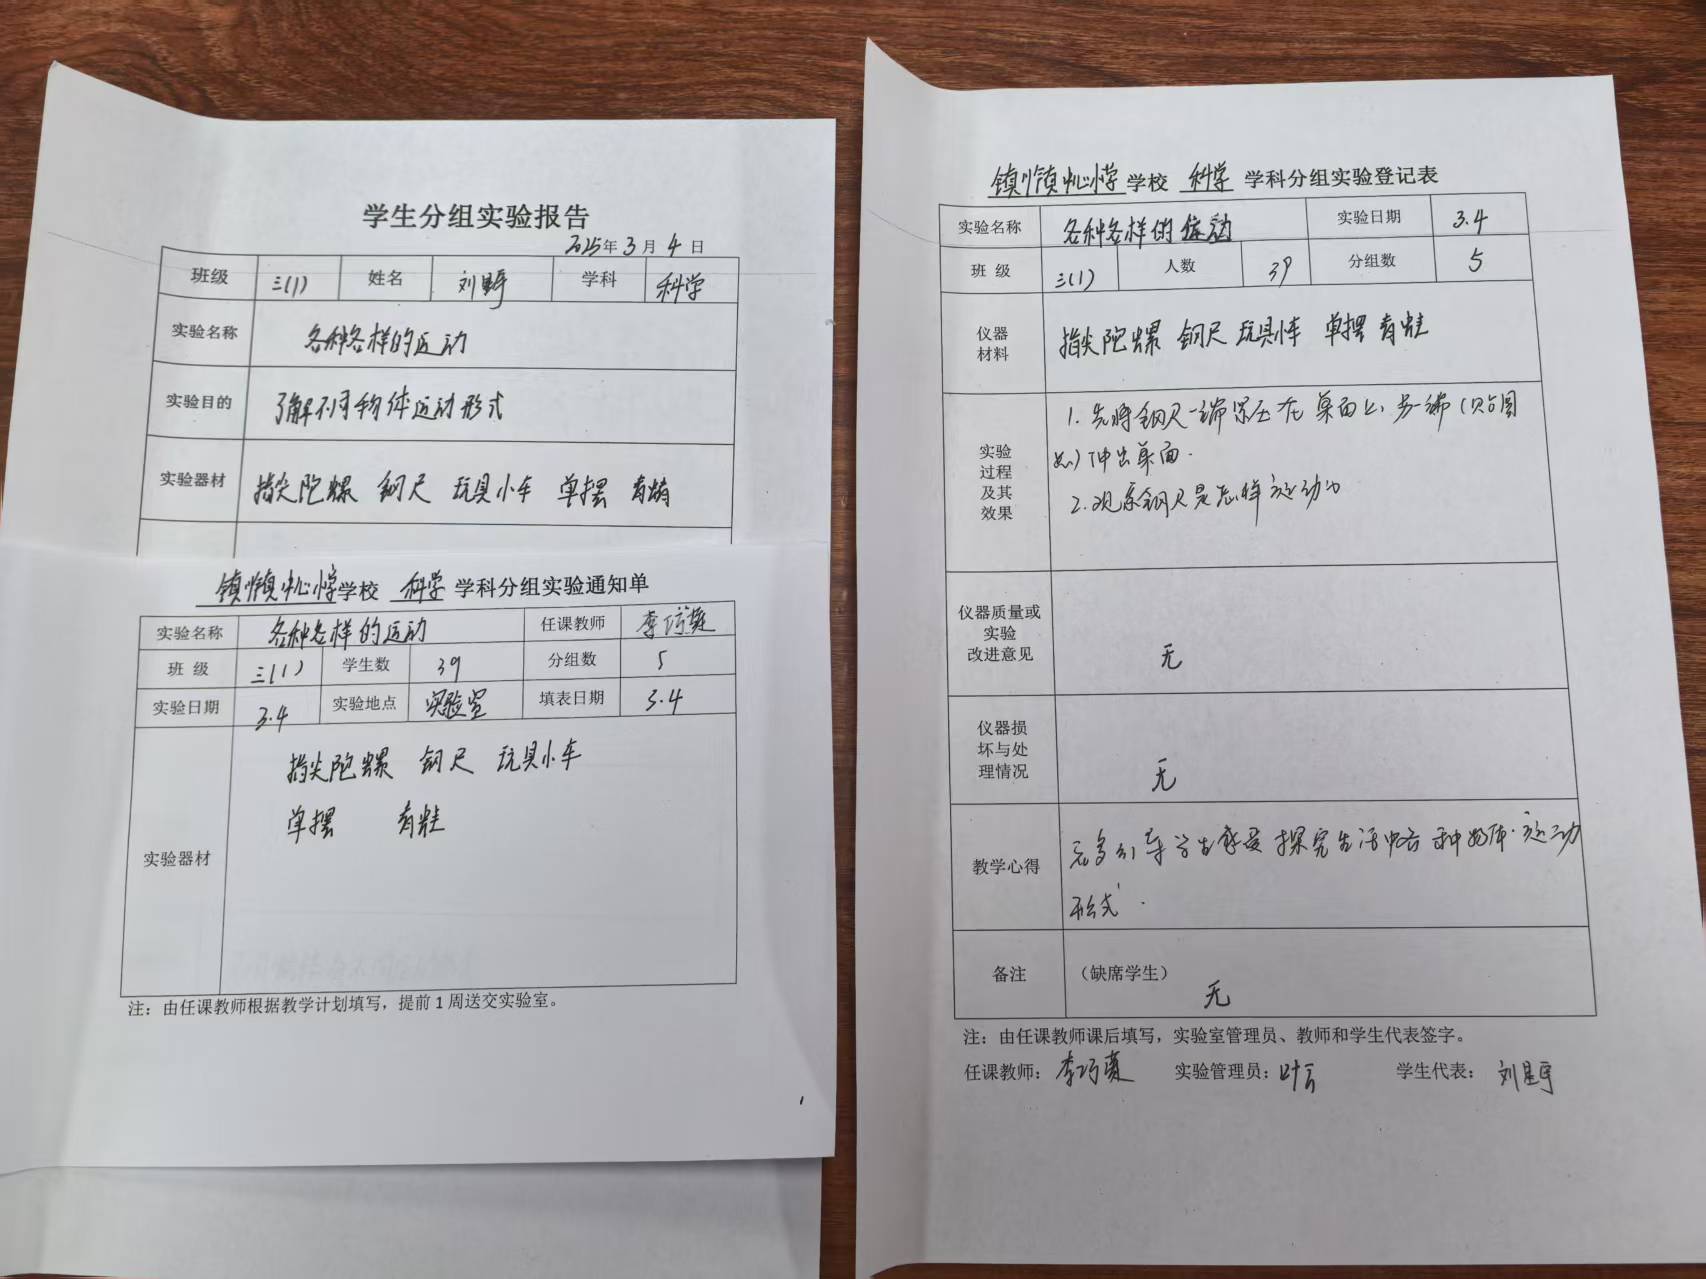 学生分组实验报告
2025年3月4日
班级 三(1) 姓名 刘星宇 学科 科学
实验名称 各种各样的运动
实验目的 了解不同物体运动形式
实验器材 指尖陀螺 钢尺 玩具小车 单摆 青蛙
中心小学学校 科学 学科分组实验通知单
实验名称 各种各样的运动 任课教师 李巧莲
班 级 三(1) 学生数 39 分组数 5
实验日期 3.4 实验地点 实验室 填表日期 3.4
实验器材
指尖陀螺 钢尺 玩具小车
单摆 青蛙
注：由任课教师根据教学计划填写，提前1周送交实验室。
中心小学学校 科学 学科分组实验登记表
实验名称 各种各样的运动 实验日期 3.4
班 级 三(1) 人数 39 分组数 5
仪器
材料
指尖陀螺 钢尺 玩具小车 单摆 青蛙
实验
过程
及其
效果
1.先将钢尺一端紧压在桌面上,另一端(贴圆
点)伸出桌面.
2.观察钢尺是怎样运动的
仪器质量或
实验
改进意见
无
仪器损
坏与处
理情况
无
教学心得
引导学生感受探究生活中各种物体运动
形式.
备注 (缺席学生)
无
注：由任课教师课后填写，实验室管理员、教师和学生代表签字。
任课教师： 李巧莲 实验管理员： 叶云 学生代表： 刘星宇